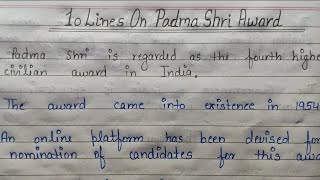 10 Lines On Padma Shri Award
Padma Shri is regarded as the fourth highe
civilian award in India.
The award came into existence in 1954
An online platform has been devised for
nomination of candidates for this awa